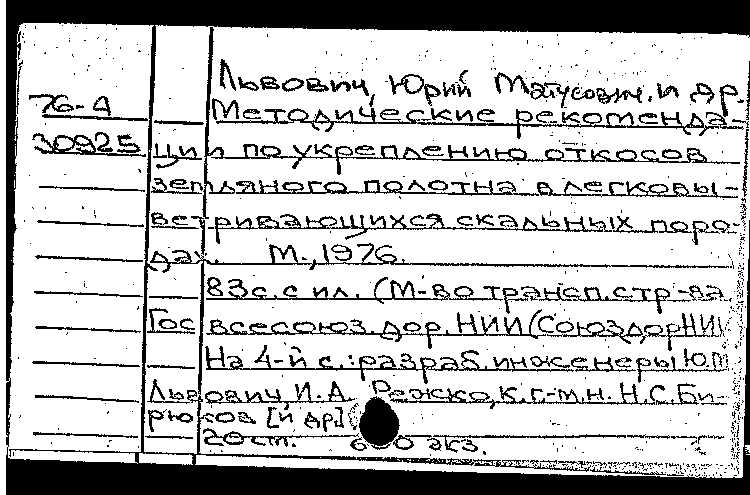 Львович, Юрий Матусович. и др.
76-4
Методические рекоменда-
30925 ции по укреплению откосов
земляного полотна в легковы-
ветривающихся скальных поро-
дах. М., 1976.
83с. с ил. (М-во трансп. стр-ва.
Гос всесоюз. дор. НИИ (СоюздорНИИ
На 4-й с.: разраб. инженеры Ю.М
Львович, И.А. Режко, к.г-м.н. Н.С. Би-
рюков [и др.]
20см. экз.